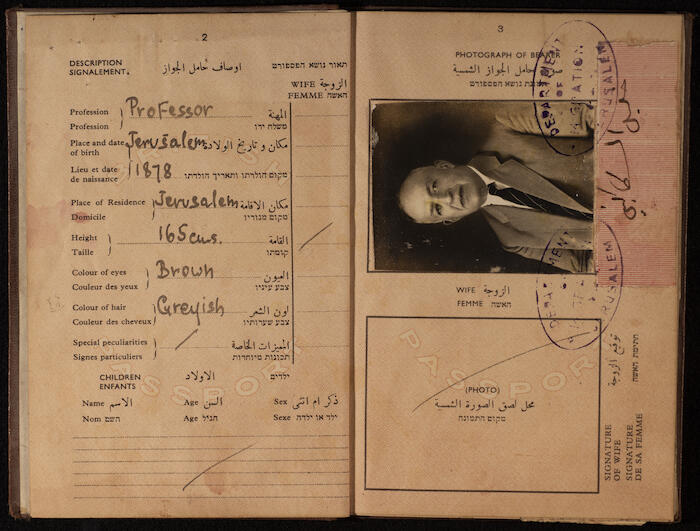 2
DESCRIPTION
SIGNALEMENT.
اوصاف حامل الجواز
תאור נושא הפספורט
WIFE الزوجة
FEMME האשה
Profession Professor المهنة
Profession משלח ידו
Place and date of birth Jerusalem مكان و تاريخ الولادة
Lieu et date de naissance 1878 מקום הולדתו ותאריך הולדתו
Place of Residence Jerusalem مكان الاقامة
Domicile מקום מגוריו
Height 165 cms. القامة
Taille קומתו
Colour of eyes Brown العيون
Couleur des yeux צבע עיניו
Colour of hair Greyish لون الشعر
Couleur des cheveux צבע שערותיו
Special peculiarities المميزات الخاصة
Signes particuliers תכונות מיוחדות
PASSPORT
CHILDREN الاولاد ילדים
ENFANTS
Name الاسم Age السن Sex ذكر ام انثى
Nom השם Age הגיל Sexe ילד או ילדה
3
PHOTOGRAPH OF BEARER
حامل الجواز الشمسية
נושא הפספורט
DEPARTMENT OF IMMIGRATION JERUSALEM
WIFE الزوجة
FEMME האשה
DEPARTMENT JERUSALEM
PASSPORT
(PHOTO)
محل لصق الصورة الشمسية
מקום התמונה
توقيع الزوجة
חתימת האשה
SIGNATURE OF WIFE
SIGNATURE DE SA FEMME